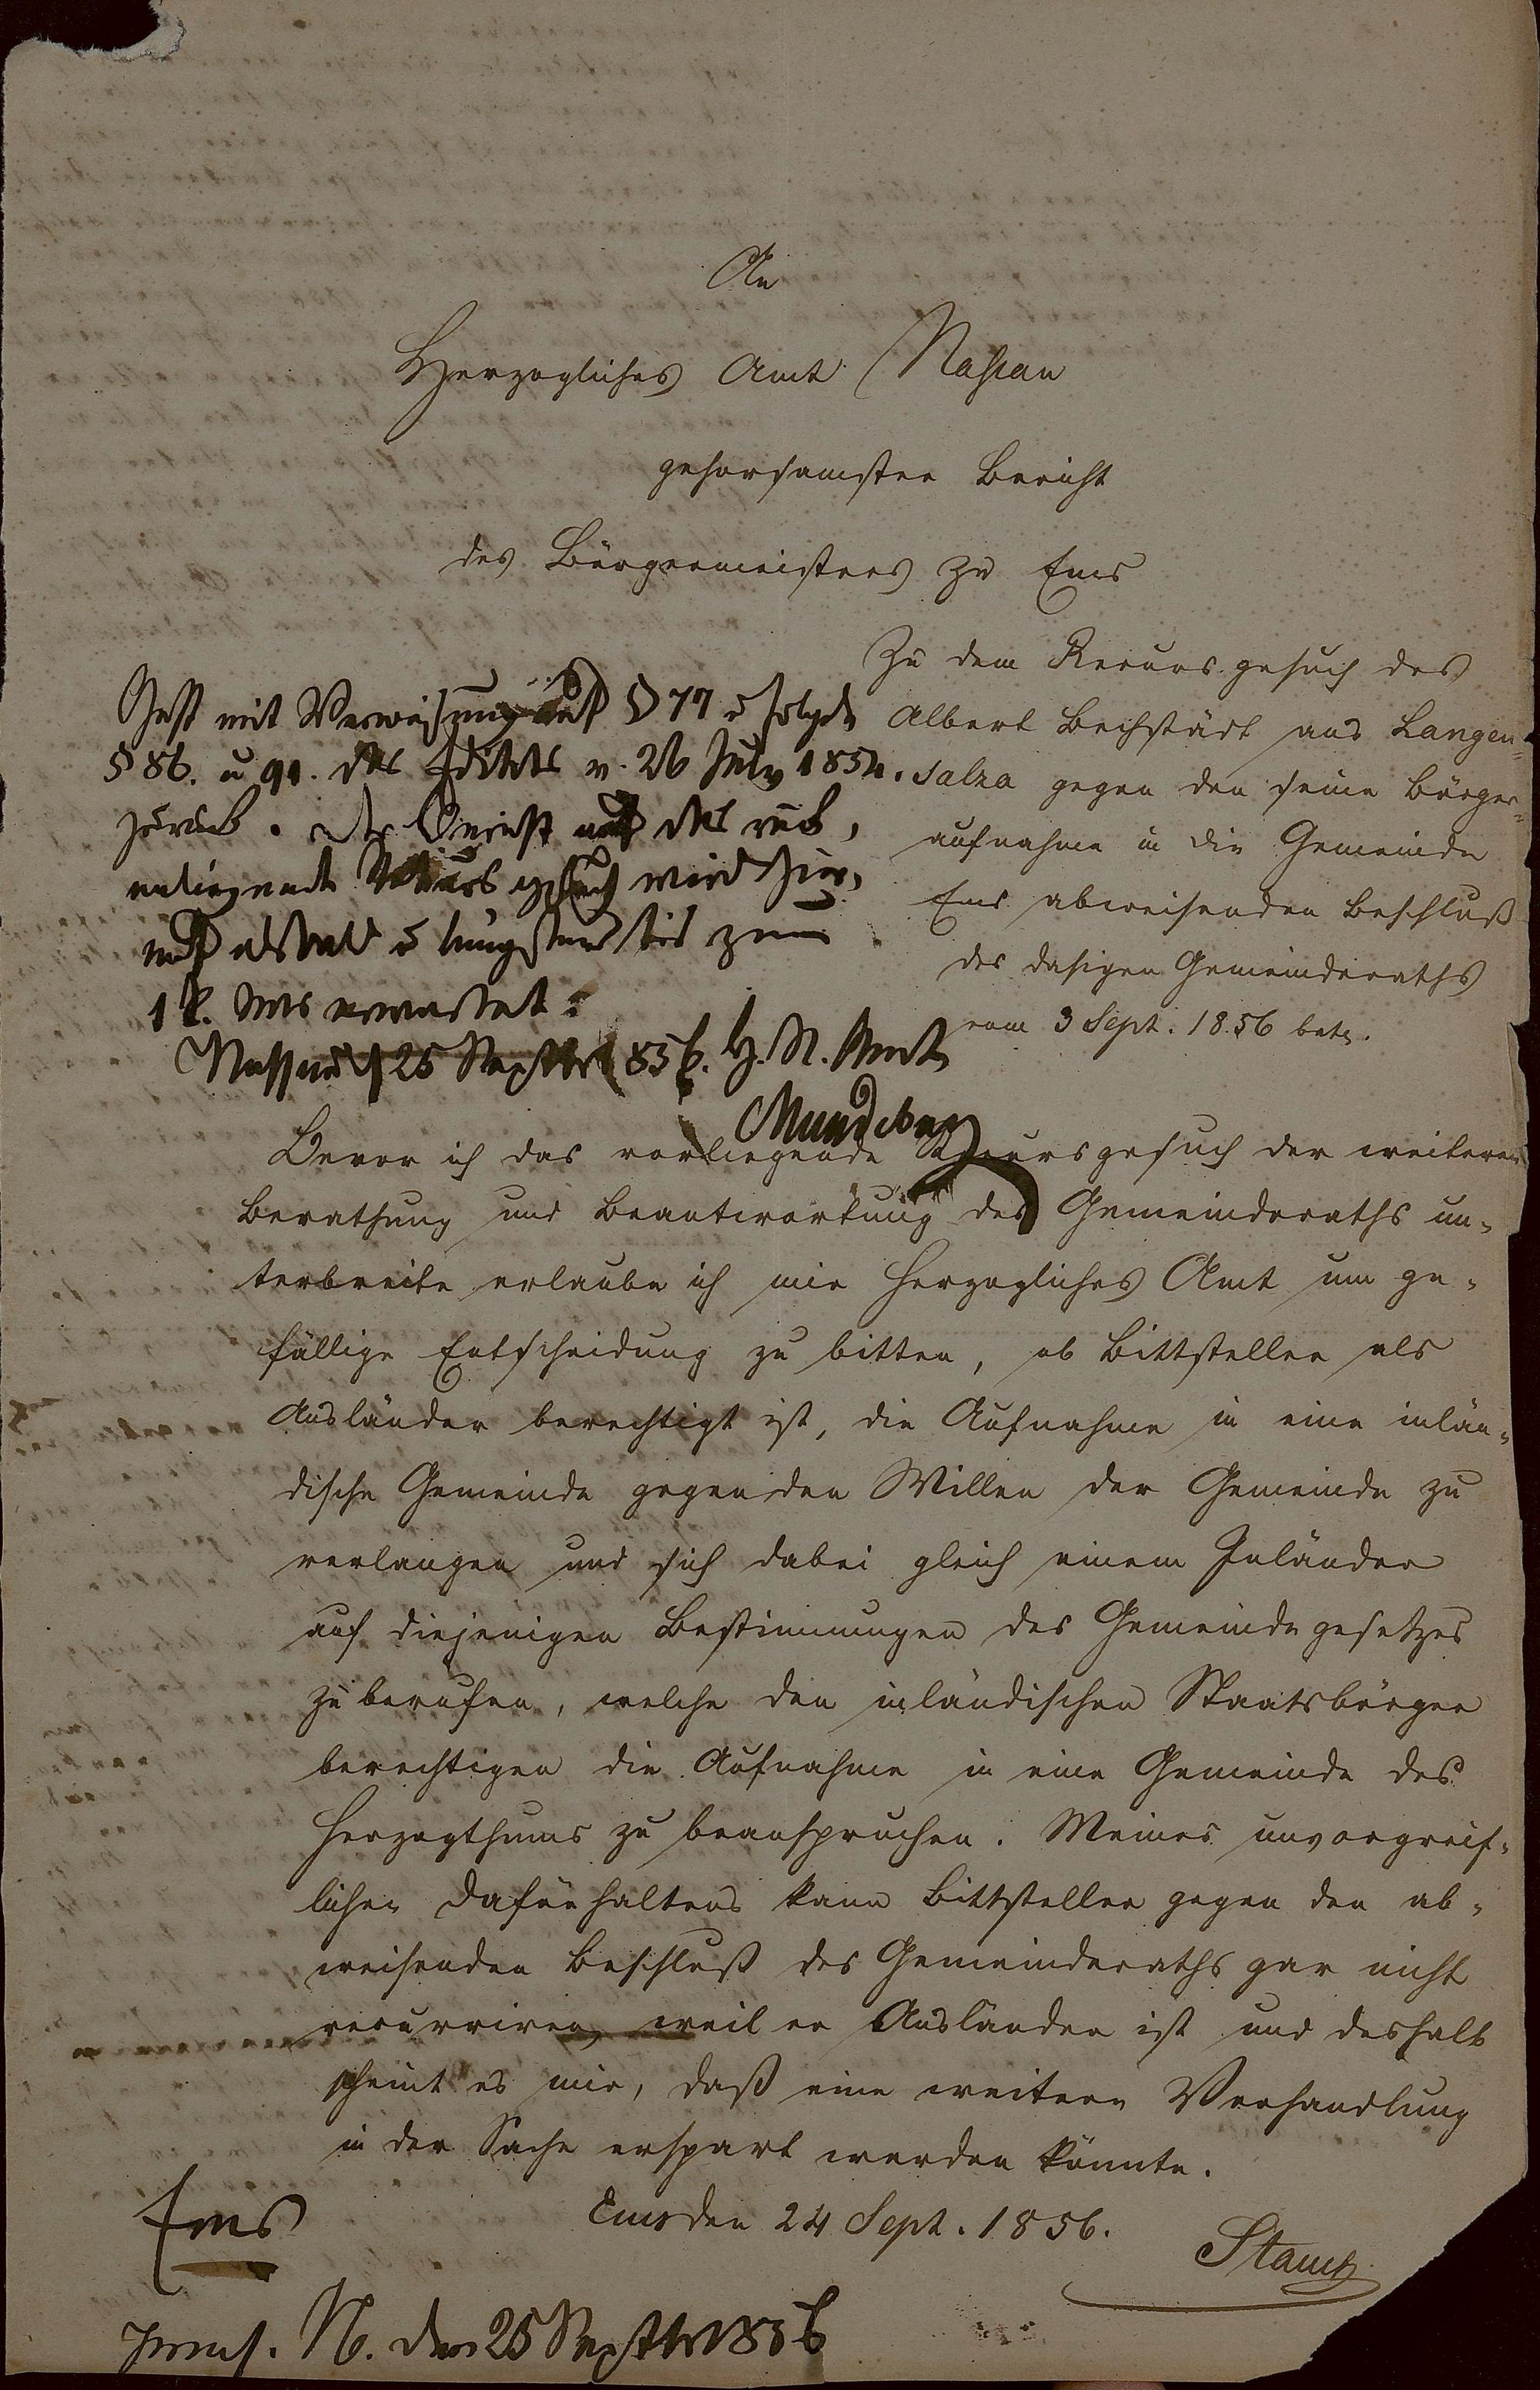 An
Herzogliches Amt Nassau
gehorsamster Bericht
des Bürgermeisters zu Ems
Zu dem Recurs gesuch des
Albert Bechstädt aus Langen=
salza gegen den seine Bürger=
aufnahme in die Gemeinde
Ems abweisenden Beschluß
des dasigen Gemeinderaths
vom 3 Sept. 1856 betr.
Geht mit Verweisung auf § 77 u folgde
§ 86. u 91. des Edikts v. 26 July 1854.
zurück. Der Bericht auf das rück,
anliegende Rekurs gesuch wird hier,
auf alsbald u längstens bis zum
1 k. Mts erwartet.
Nassau d 25 Septbr 1856. H. N. Amt
Bevor ich das vorliegende Recursgesuch der weiteren
Berathung und Beantwortung des Gemeinderaths un-
terbreite erlaube ich mir Herzogliches Amt um ge-
fällige Entscheidung zu bitten, ob Bittsteller als
Ausländer berechtigt ist, die Aufnahme in eine inlän-
dische Gemeinde gegen den Willen der Gemeinde zu
verlangen und sich dabei gleich einem Inländer
auf diejenigen Bestimmungen des Gemeindegesetzes
zu berufen, welche den inländischen Staatsbürger
berechtigen die Aufnahme in eine Gemeinde des
Herzogthums zu beanspruchen. Meines unvorgreif-
lichen Dafürhaltens kann Bittsteller gegen den ab-
weisenden Beschluß des Gemeinderaths gar nicht
recurriren, weil er Ausländer ist und deshalb
scheint es mir, daß eine weitere Verhandlung
in der Sache erspart werden könnte.
Ems den 24 Sept. 1856.
Ems
praes. N. den 25 Septbr 1856